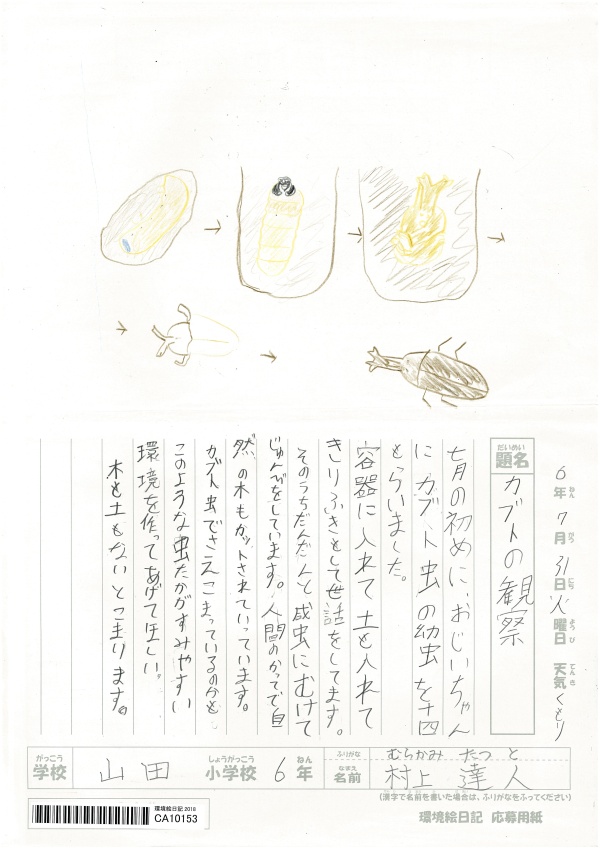 6年 7月 31日 火曜日 天気 くもり
ねん がつ にち よう び てん き
だいめい
題名 カブトの観察
七月の初めに、おじいちゃん
に カブト虫の幼虫を十四
もらいました。
容器に入れて 土を入れて
きりふきをして世話をしてます。
そのうちだんだんと成虫にむけて
じゅんびをしています。人間のかってで自
然の木もカットされていっています。
カブト虫でさえこまっているのかと
このような虫たかがすみやすい
環境を作ってあげてほしい。
木も土もないとこまります。
がっこう しょうがっこう ねん ふりがな むらかみ たつと
学校 山田 小学校 6年 なまえ 名前 村上 達人
(漢字で名前を書いた場合は、ふりがなをふってください)
環境絵日記 2018
CA10153
環境絵日記 応募用紙